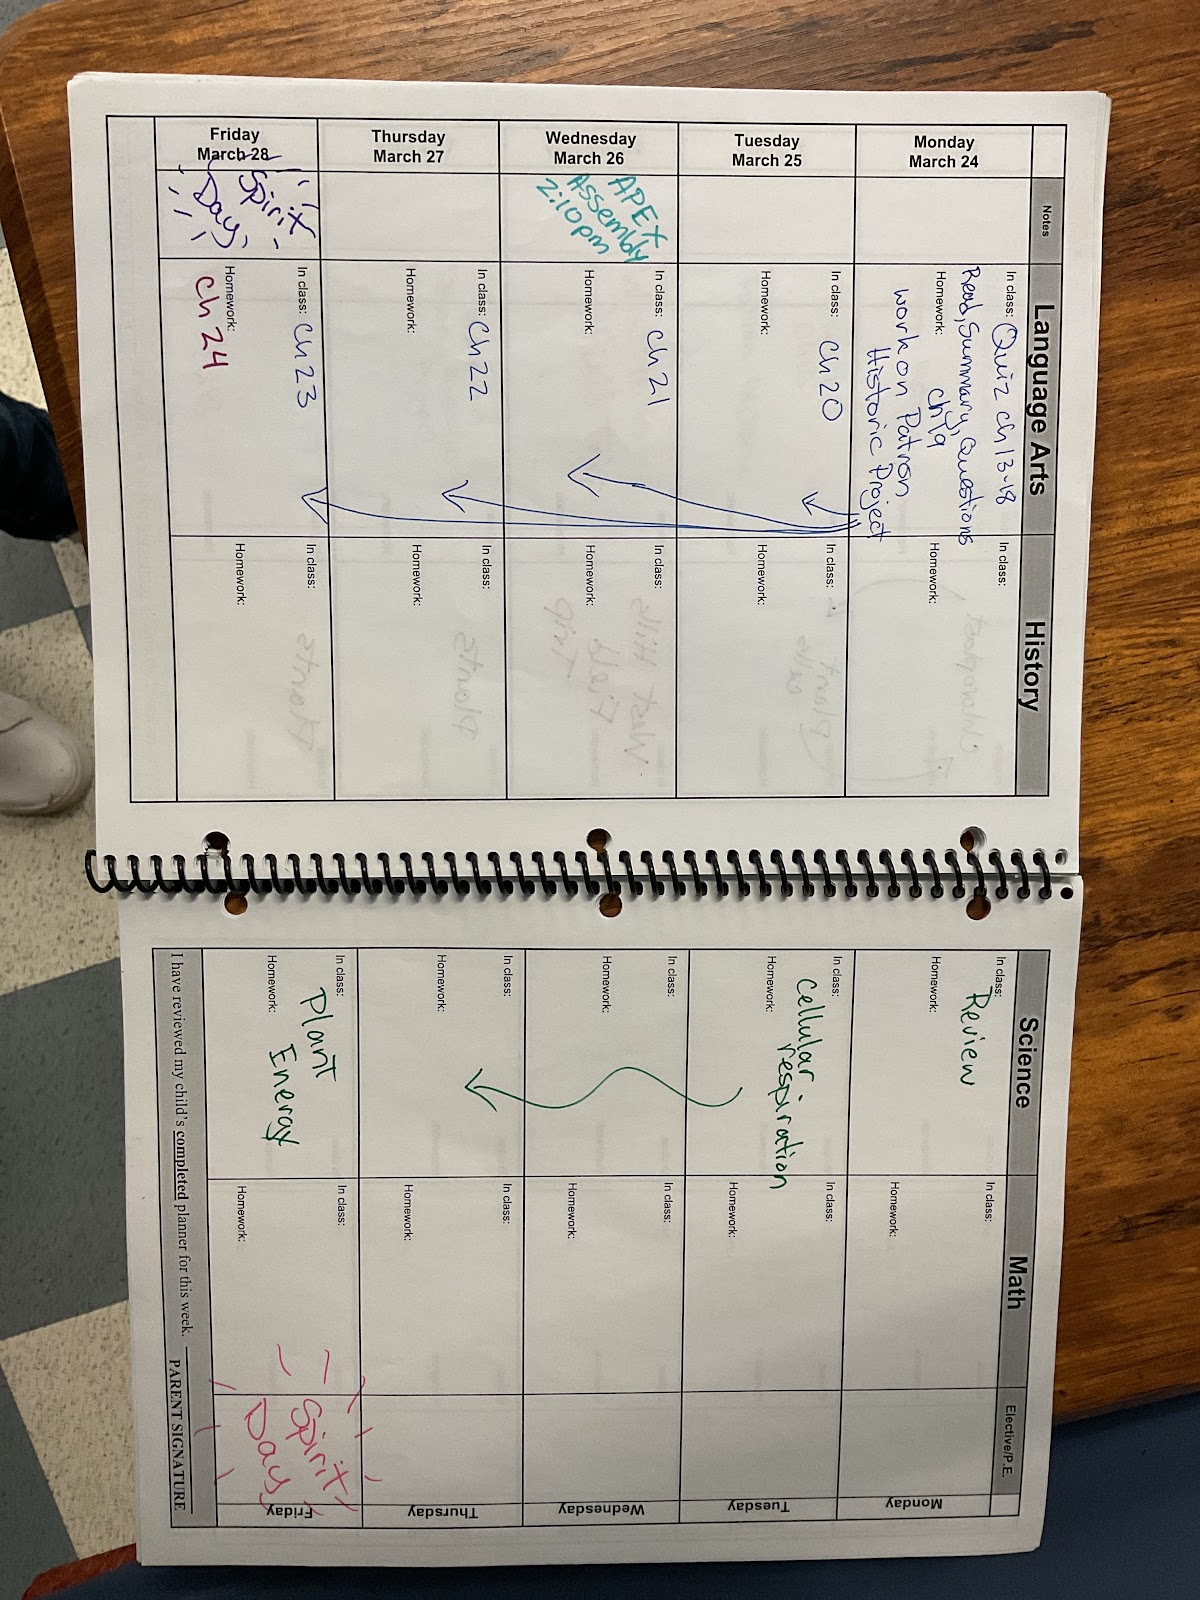 Monday
March 24
Tuesday
March 25
Wednesday
March 26
Thursday
March 27
Friday
March 28
Notes
APEX
Assembly
2:10pm
Spirit
Day
Language Arts
In class: Quiz ch 13-18
Read, Summary, Questions
ch 19
Homework:
work on Patron
Historic Project
In class: ch 20
Homework:
In class: ch 21
Homework:
In class: ch 22
Homework:
In class: ch 23
Homework:
ch 24
History
In class:
Homework:
In class:
Homework:
In class:
Homework:
In class:
Homework:
In class:
Homework:
Science
In class:
Review
Homework:
In class:
cellular
respiration
Homework:
In class:
Homework:
In class:
Homework:
In class:
Plant
Energy
Homework:
Math
In class:
Homework:
In class:
Homework:
In class:
Homework:
In class:
Homework:
In class:
Homework:
Elective/P.E.
Spirit
Day
Monday
Tuesday
Wednesday
Thursday
Friday
I have reviewed my child's completed planner for this week.
PARENT SIGNATURE